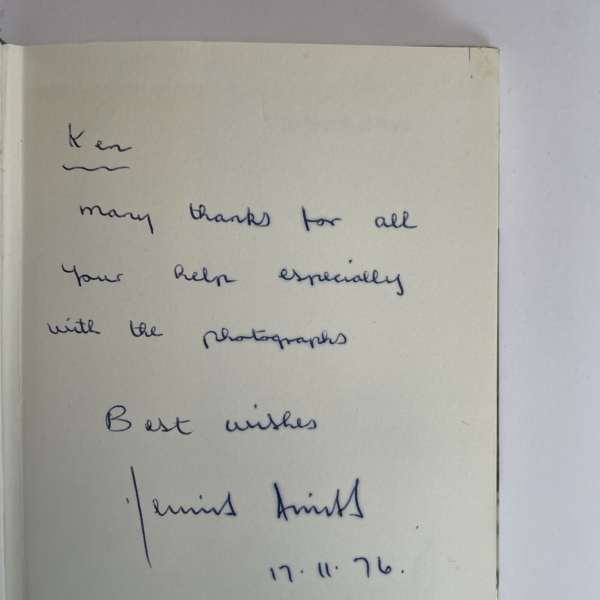 Ken
Many thanks for all
your help especially
with the photographs
Best wishes
Dennis Amiss
17.11.76.